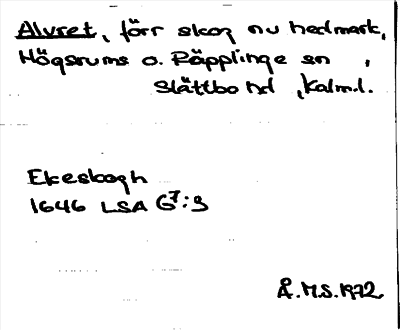 Alvret, förr skog nu hedmark,
Högsrums o. Räpplinge sn ,
Slättbo hd , Kalm.l.
Ekesbogh
1646 LSA G7:3
Å.M.S. 1972